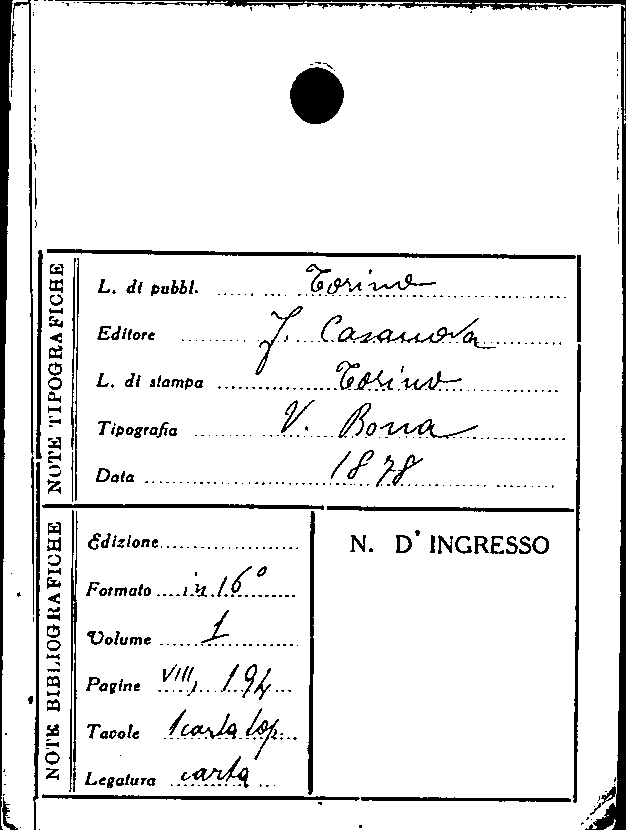 NOTE TIPOGRAFICHE
L. di pubbl. Torino
Editore F. Casanova
L. di stampa Torino
Tipografia V. Bona
Data 1878
NOTE BIBLIOGRAFICHE
Edizione
Formato in 16°
Volume 1
Pagine VIII, 194
Tavole 1 carta top.
Legatura carta
N. D' INGRESSO